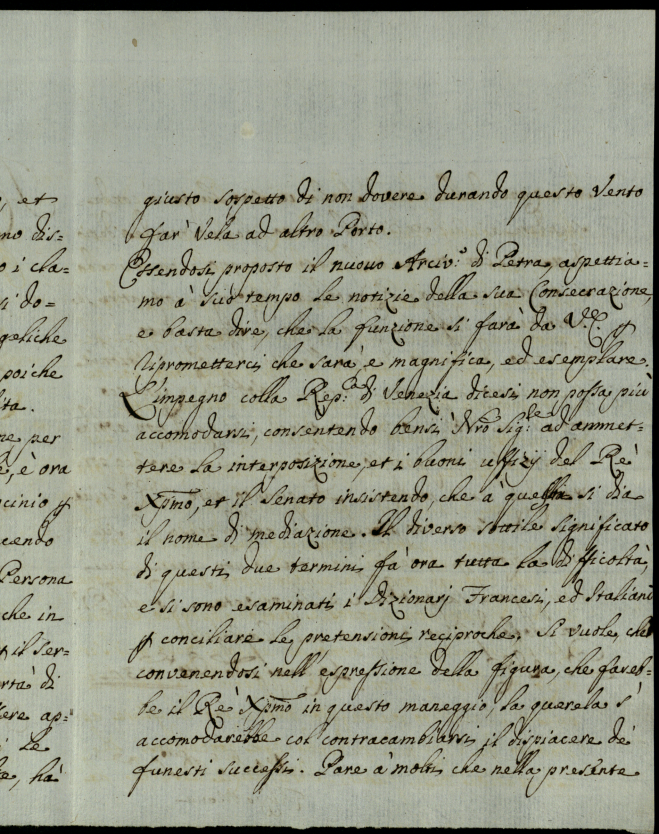 o, et
no dis=
o i cla=
si do=
geliche
poiche
ita.
ne per
è, è ora
ocinio p
acendo
Persona
che in
p il Ser=
rtà di
ere ap=
Le
te, hà
giusto sospetto di non dovere durando questo Vento
far' Vela ad altro Porto.
Essendosi proposto il nuovo Arciv.º di Petra, aspettia=
mo à suo tempo le notizie della sua Consecrazione,
e basta dire, che la funzione si farà da V.E. p
ripromettersi che sarà, e magnifica, ed esemplare.
L'impegno colla Rep.ca di Venezia dicesi non possa più
accomodarsi, consentendo bensì Nrõ Sig.re ad ammet=
tere la interposizione, et i buoni uffizij del Rè
Xpmo, et il Senato insistendo, che à quella si dia
il nome di mediazione. Il diverso sottile significato
di questi due termini fà ora tutta la difficoltà,
e si sono esaminati i Dizionarj Francesi, ed Italiani
p conciliare le pretensioni reciproche. Si vuole, che
convenendosi nell'espressione della figura, che fareb=
be il Rè Xpmo in questo maneggio, la querela s'
accomodarebbe col contracambiarsi il dispiacere de'
funesti successi. Pare à molti che nella presente